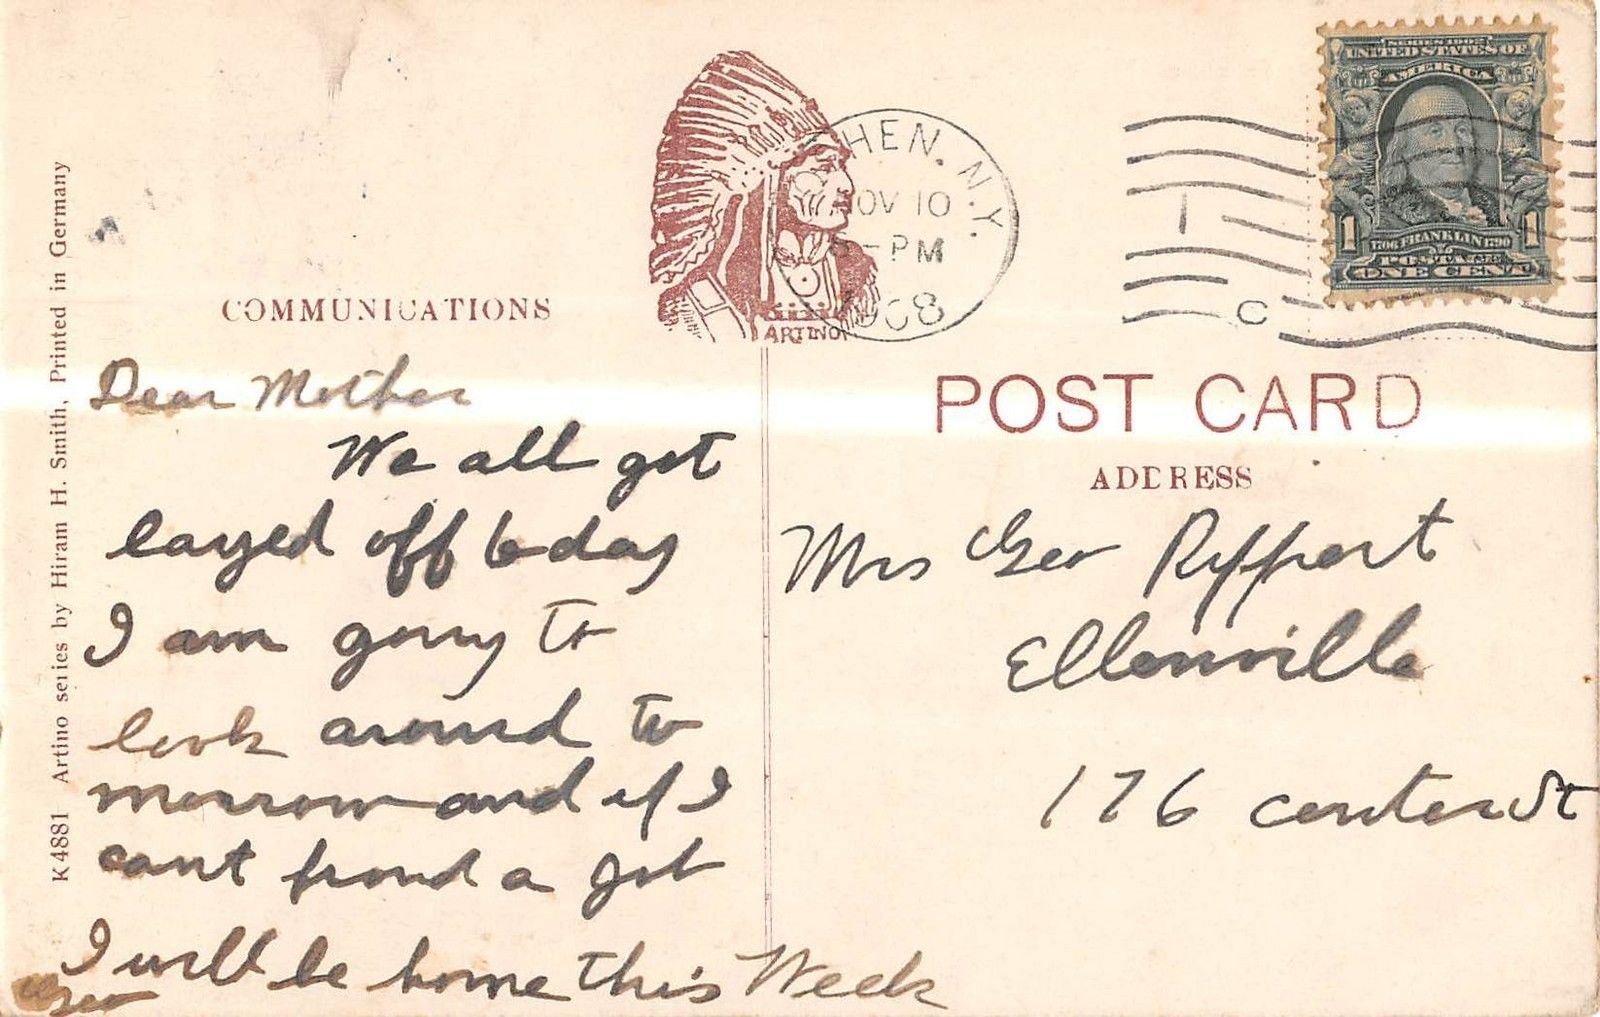 COMMUNICATIONS
Dear Mother
We all got
layed off today
I am going to
look around to
morrow and if I
cant find a job
I will be home this Week
Geo
K 4881 Artino series by Hiram H. Smith, Printed in Germany
ARTINO
HEN. N.Y.
NOV 10
5-PM
1908
C
SERIES 1902
UNITED STATES OF
AMERICA
1 1706 FRANKLIN 1790 1
POSTAGE
ONE CENT
POST CARD
ADDRESS
Mrs Geo Ruppert
Ellenville
176 center St